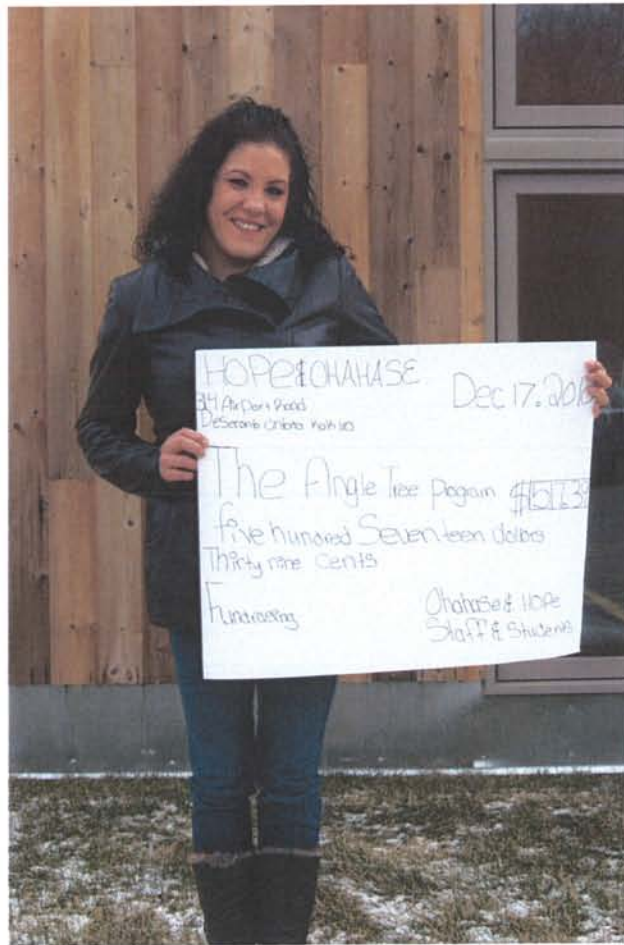 HOPE & OHAHASE
Dec 17. 201
314 Airport Road
Deseronto
The Angle Tree Pogram $517.39
five hundred Seventeen dollars
Thirty nine cents
Fundraising
Ohahase & HOPE
Staff & Students